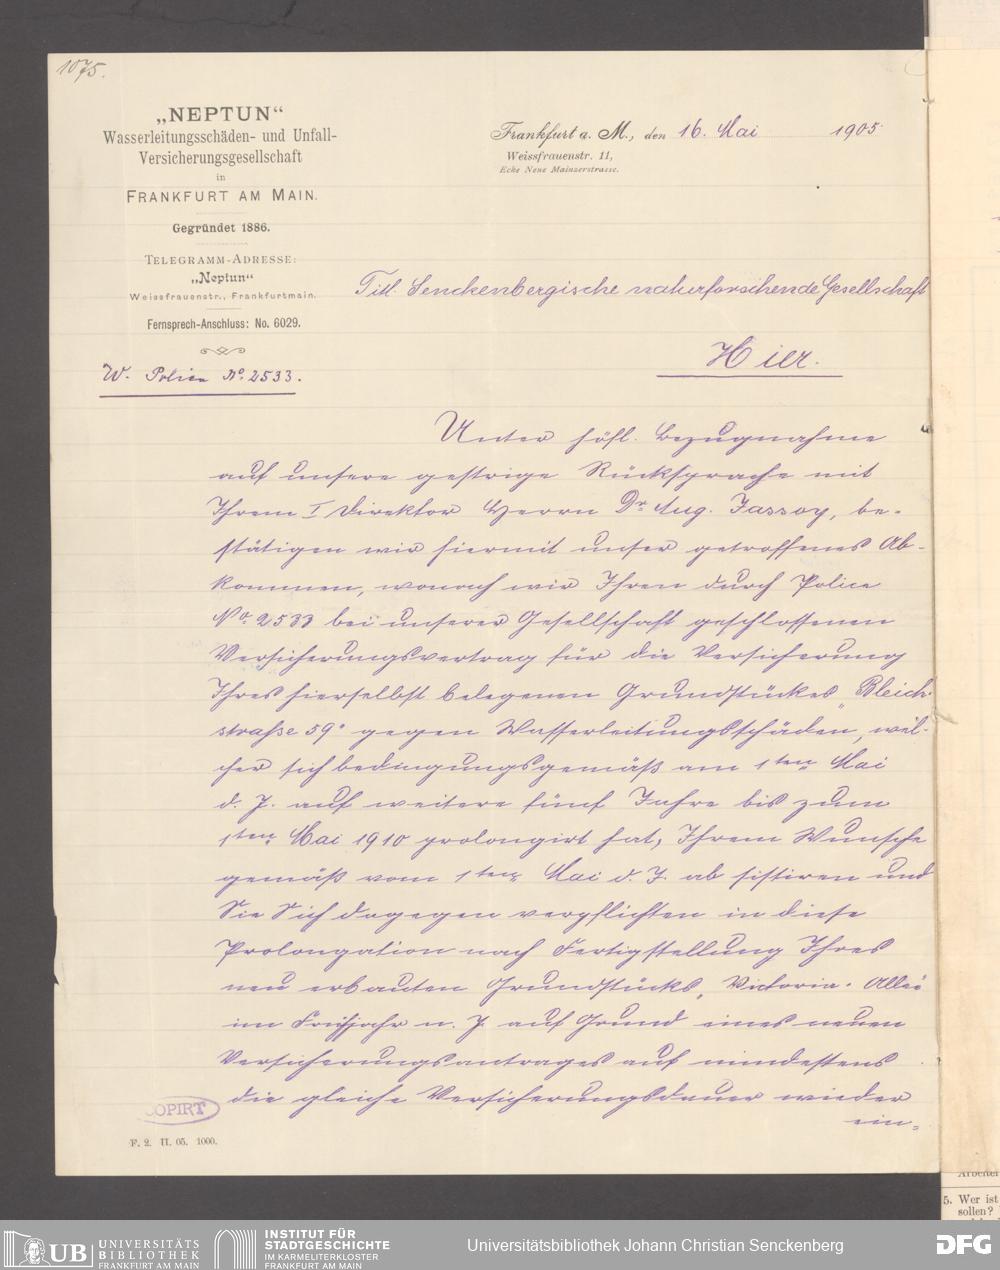 1075.
„NEPTUN“
Wasserleitungsschäden- und Unfall-
Versicherungsgesellschaft
in
FRANKFURT AM MAIN.
Gegründet 1886.
TELEGRAMM-ADRESSE:
„Neptun“
Weissfrauenstr., Frankfurtmain.
Fernsprech-Anschluss: No. 6029.
W. Police No. 2533.
Frankfurt a. M., den 16. Mai 1905
Weissfrauenstr. 11,
Ecke Neue Mainzerstrasse.
Titl. Senckenbergische naturforschende Gesellschaft
Hier.
Unter höfl. Bezugnahme
auf unsere gestrige Rücksprache mit
Ihrem I Direktor Herrn Dr. Aug. Jassoy, be-
stätigen wir hiermit unser getroffenes Ab-
kommen, wonach wir Ihren durch Police
No. 2533 bei unserer Gesellschaft geschlossenen
Versicherungsvertrag für die Versicherung
Ihres hierselbst belegenen Grundstückes „Bleich-
straße 59“ gegen Wasserleitungsschäden, wel-
cher sich bedingungsgemäß am 1ten Mai
d. J. auf weitere fünf Jahre bis zum
1ten Mai 1910 prolongirt hat, Ihrem Wunsche
gemäß vom 1ten Mai d. J. ab sistiren und
Sie Sich dagegen verpflichten in diese
Prolongation nach Fertigstellung Ihres
neu erbauten Grundstücks, Victoria-Allee
im Frühjahr n. J. auf Grund eines neuen
Versicherungsantrages auf mindestens
die gleiche Versicherungsdauer wieder
ein-
COPIRT
F. 2. II. 05. 1000.
Arbeiter
5. Wer ist
sollen?
UB UNIVERSITÄTS
BIBLIOTHEK
FRANKFURT AM MAIN
INSTITUT FÜR
STADTGESCHICHTE
IM KARMELITERKLOSTER
FRANKFURT AM MAIN
Universitätsbibliothek Johann Christian Senckenberg
DFG